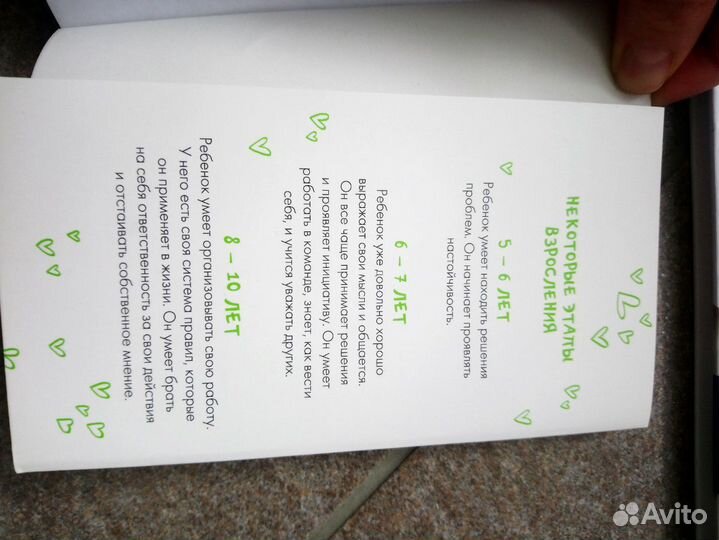 НЕКОТОРЫЕ ЭТАПЫ
ВЗРОСЛЕНИЯ
5 – 6 ЛЕТ
Ребенок умеет находить решения
проблем. Он начинает проявлять
настойчивость.
6 – 7 ЛЕТ
Ребенок уже довольно хорошо
выражает свои мысли и общается.
Он все чаще принимает решения
и проявляет инициативу. Он умеет
работать в команде, знает, как вести
себя, и учится уважать других.
8 – 10 ЛЕТ
Ребенок умеет организовывать свою работу.
У него есть своя система правил, которые
он применяет в жизни. Он умеет брать
на себя ответственность за свои действия
и отстаивать собственное мнение.
Avito